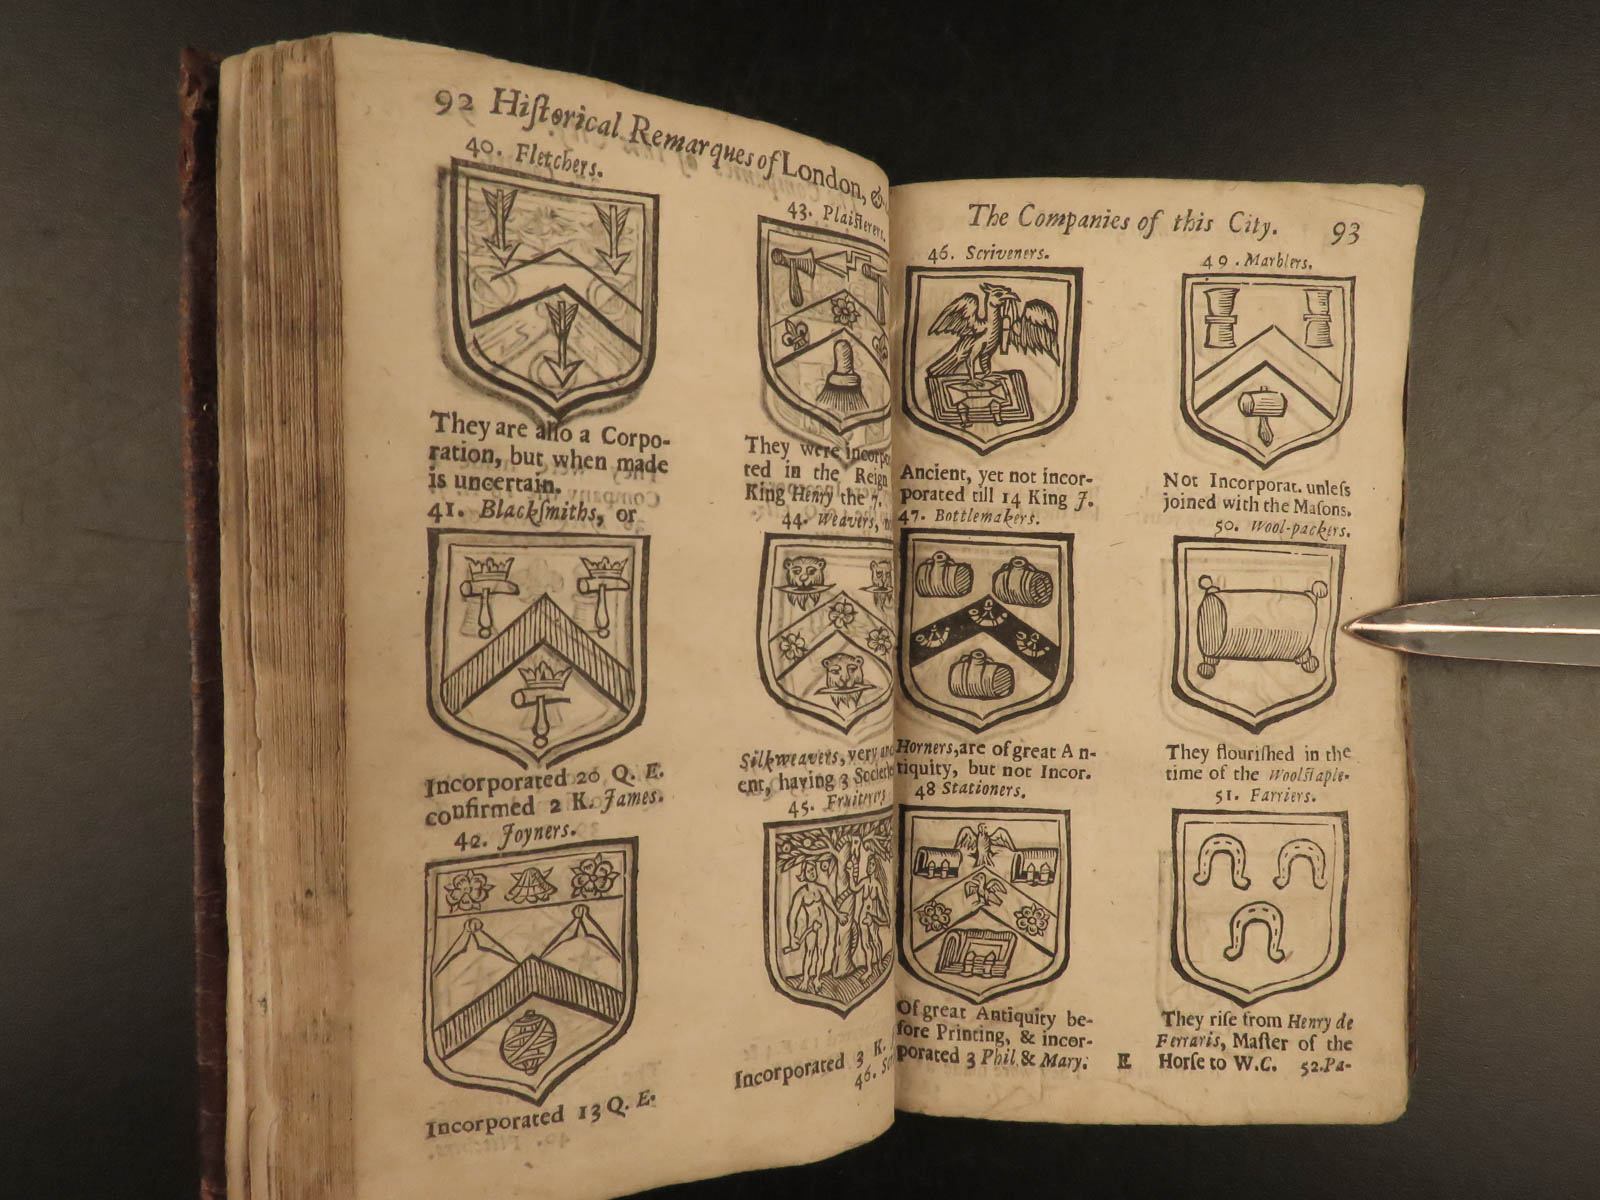 92 Hiſtorical Remarques of London, &
40. Fletchers.
They are alſo a Corpo-
ration, but when made
is uncertain.
41. Blackſmiths, or
Incorporated 20 Q. E.
confirmed 2 K. James.
42. Joyners.
Incorporated 13 Q. E.
43. Plaiſterers.
They were incorpo
ted in the Reign
King Henry the 7.
44. Weavers,
Silkweavers, very anci
ent, having 3 Societies
45. Fruiterers
Incorporated 3 K.
46.
The Companies of this City. 93
46. Scriveners.
Ancient, yet not incor-
porated till 14 King J.
47. Bottlemakers.
Horners, are of great An-
tiquity, but not Incor.
48 Stationers.
Of great Antiquity be-
fore Printing, & incor-
porated 3 Phil. & Mary.
E
49. Marblers.
Not Incorporat. unleſs
joined with the Maſons.
50. Wool-packers.
They flouriſhed in the
time of the Woolſtaple.
51. Farriers.
They riſe from Henry de
Ferraris, Maſter of the
Horſe to W.C. 52. Pa-